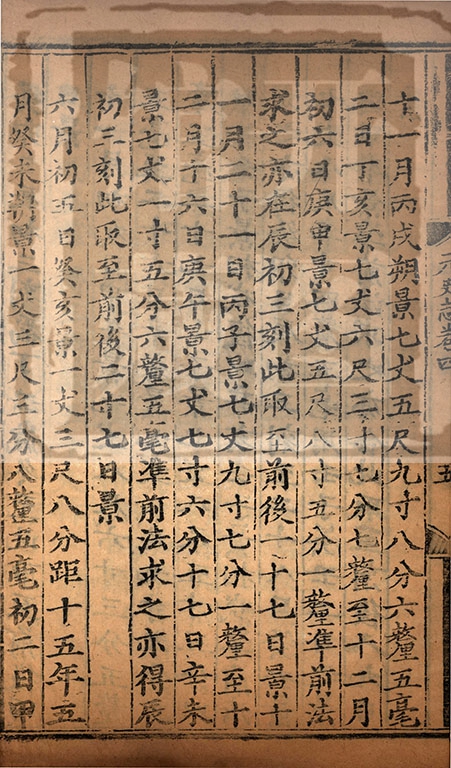 十一月丙戌朔景七丈五尺九寸八分六釐五毫
二日丁亥景七丈六尺三寸七分七釐至十二月
初六日庚申景七丈五尺八寸五分一釐準前法
求之亦在辰初三刻此取至前後一十七日景十
一月二十一日丙子景七丈九寸七分一釐至十
二月十六日庚午景七丈七寸六分十七日辛未
景七丈一寸五分六釐五毫準前法求之亦得辰
初三刻此取至前後二十七日景
六月初五日癸亥景一丈三尺八分距十五年五
月癸未朔景一丈三尺三分八釐五毫初二日甲
志卷四
五